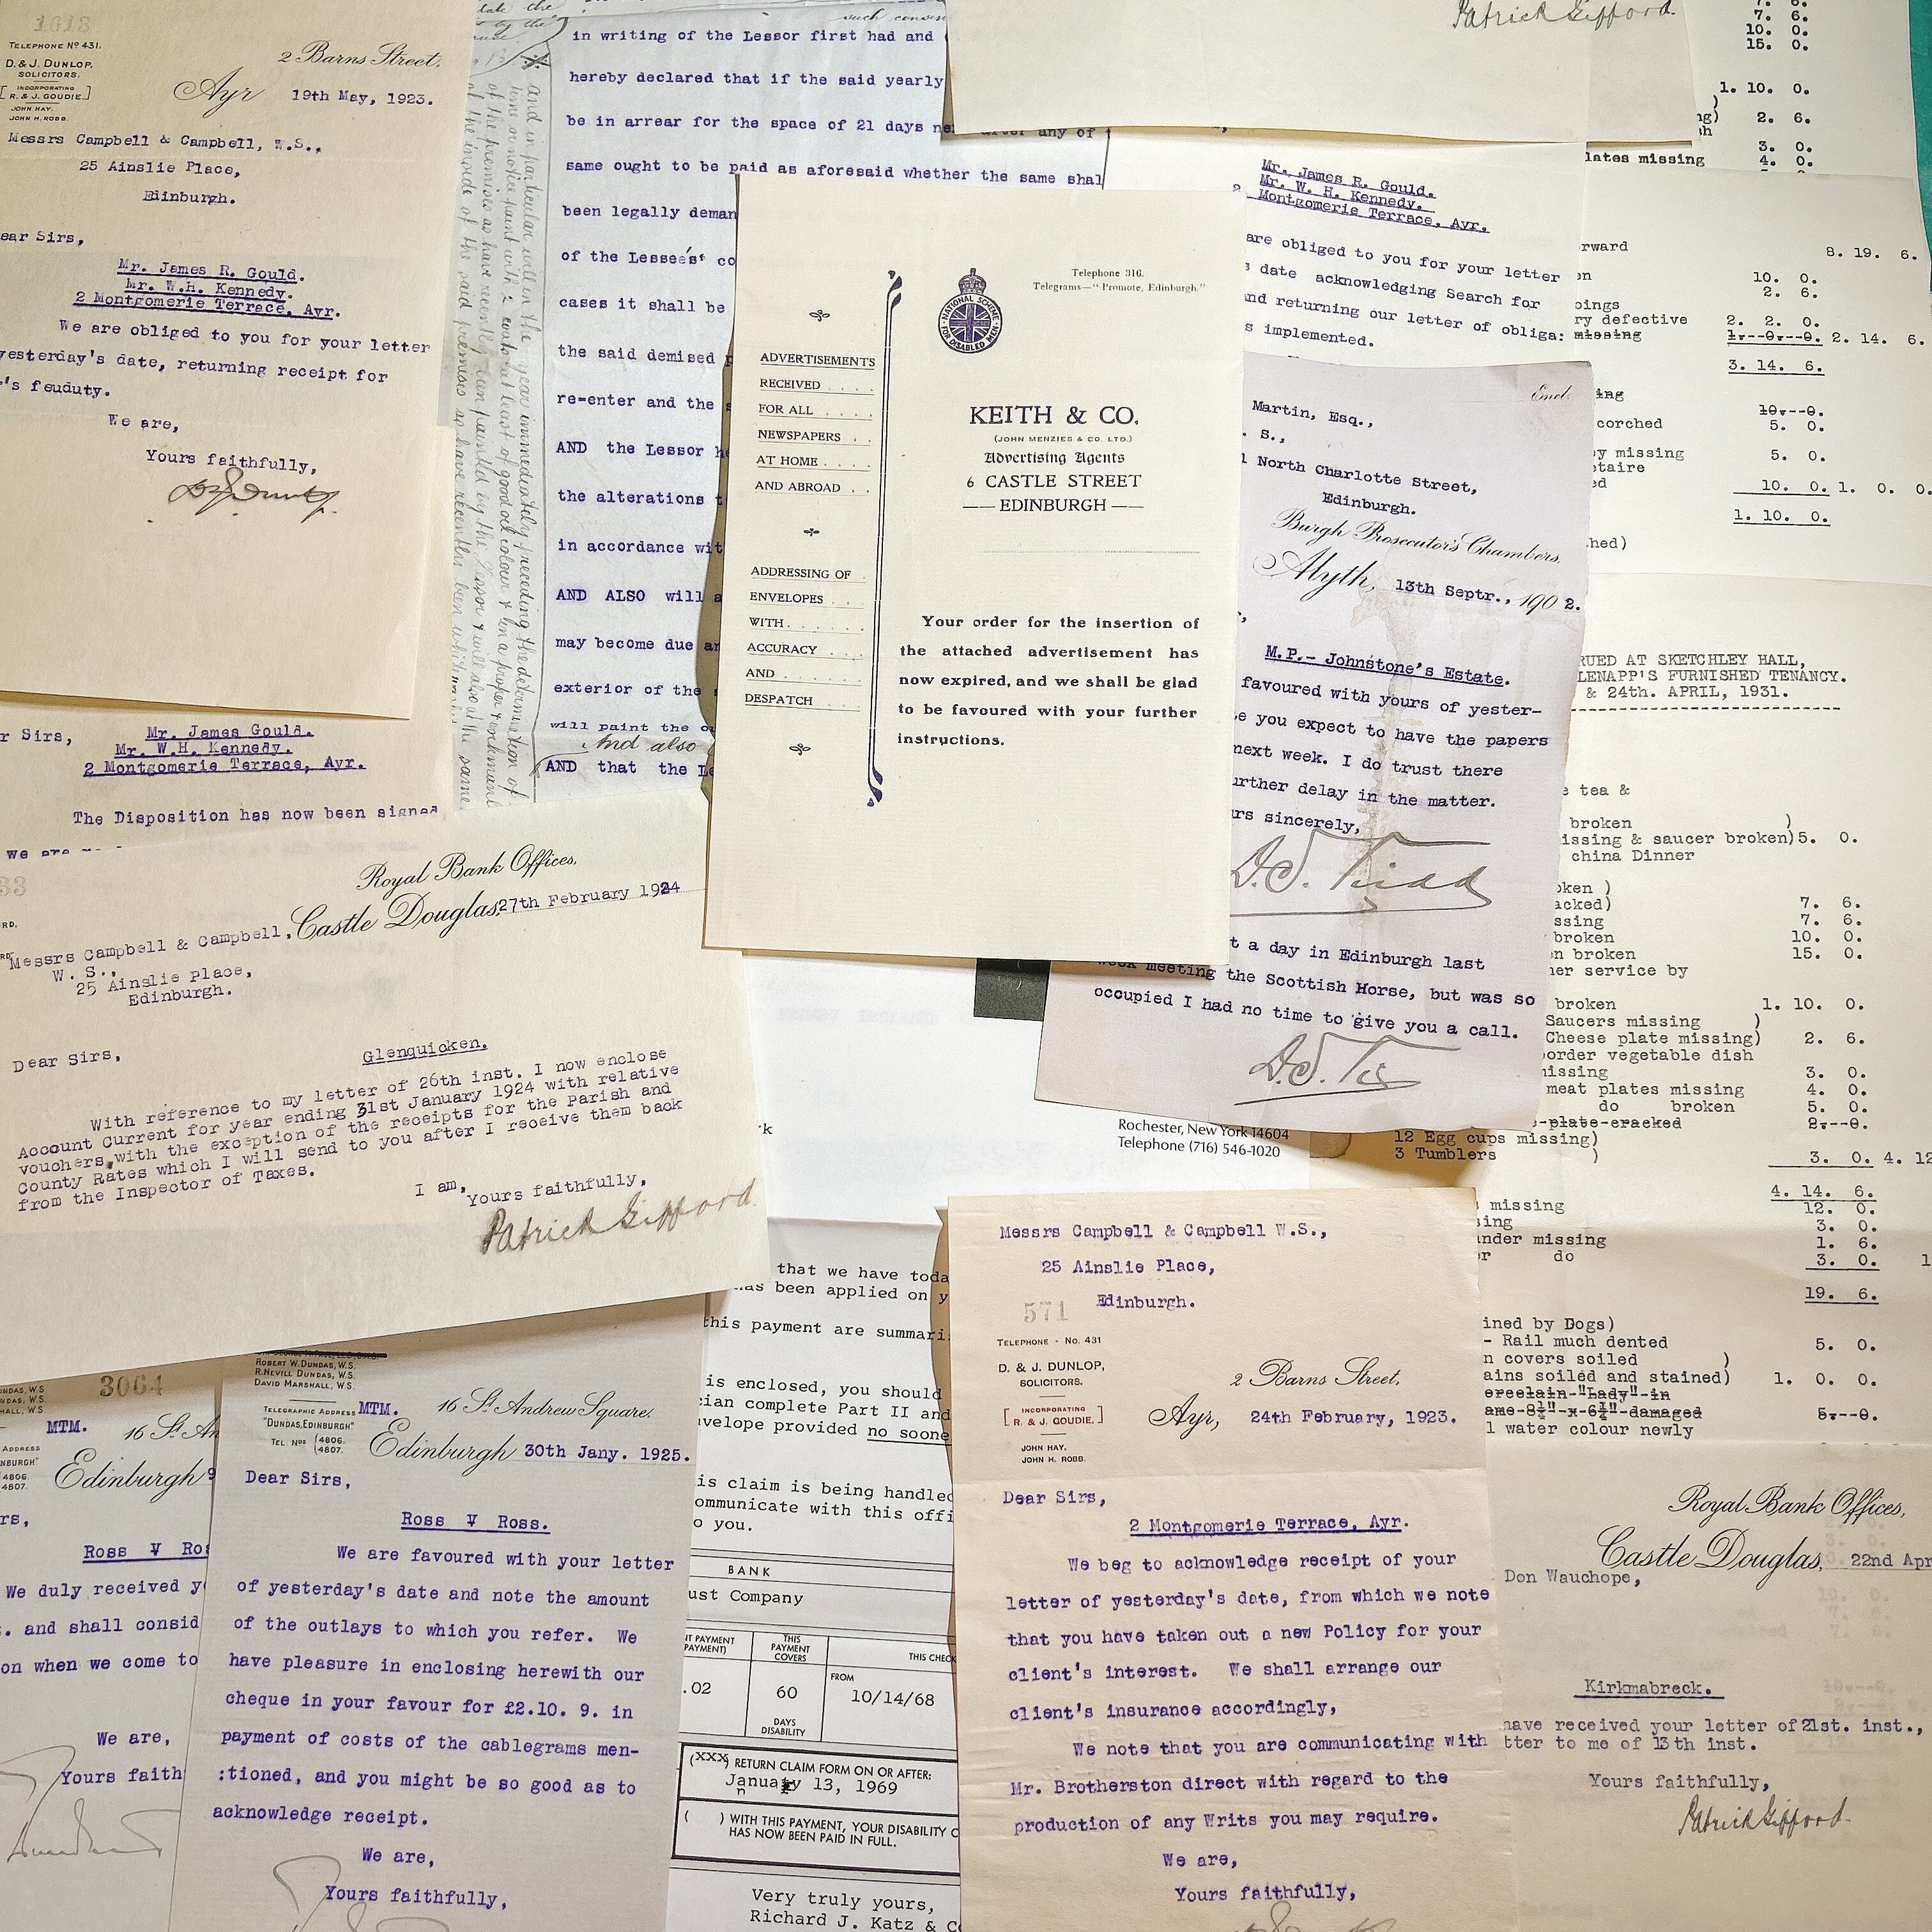 1613
TELEPHONE Nº 431.
D. & J. DUNLOP,
SOLICITORS.
INCORPORATING
R. & J. GOUDIE.
JOHN HAY.
JOHN H. ROBB.
2 Barns Street,
Ayr 19th May, 1923.
Messrs Campbell & Campbell, W.S.,
25 Ainslie Place,
Edinburgh.
ear Sirs,
Mr. James R. Gould.
Mr. W.H. Kennedy.
2 Montgomerie Terrace, Ayr.
We are obliged to you for your letter
yesterday's date, returning receipt for
's feuduty.
We are,
Yours faithfully,
r Sirs,
Mr. James Gould.
Mr. W.H. Kennedy.
2 Montgomerie Terrace, Ayr.
The Disposition has now been signed
such consen
in writing of the Lessor first had and
hereby declared that if the said yearly
be in arrear for the space of 21 days ne after any of
same ought to be paid as aforesaid whether the same shal
been legally deman
of the Lessee's co
cases it shall be
the said demised p
re-enter and the
AND the Lessor h
the alterations t
in accordance wit
AND ALSO will a
may become due an
exterior of the
will paint the o
And also
AND that the Le
and in particular will in the year immediately preceding the determination of
Patrick Gifford.
KEITH & CO.
(JOHN MENZIES & CO. LTD.)
Advertising Agents
6 CASTLE STREET
— EDINBURGH —
Telephone 316.
Telegrams—"Promote, Edinburgh."
NATIONAL SCHEME
FOR DISABLED MEN
ADVERTISEMENTS
RECEIVED . . . .
FOR ALL . . . .
NEWSPAPERS . .
AT HOME . . . .
AND ABROAD . .
ADDRESSING OF
ENVELOPES . . .
WITH . . . . . .
ACCURACY . . .
AND . . . . . . .
DESPATCH . . .
Your order for the insertion of
the attached advertisement has
now expired, and we shall be glad
to be favoured with your further
instructions.
Mr. James R. Gould.
Mr. W. H. Kennedy.
Montgomerie Terrace, Ayr.
are obliged to you for your letter
s date acknowledging Search for
nd returning our letter of obliga:
s implemented.
Encl.
Martin, Esq.,
. S.,
North Charlotte Street,
Edinburgh.
Burgh Prosecutor's Chambers,
Alyth, 13th Septr., 1902.
M.P.- Johnstone's Estate.
favoured with yours of yester-
e you expect to have the papers
next week. I do trust there
urther delay in the matter.
urs sincerely,
t a day in Edinburgh last
week meeting the Scottish Horse, but was so
occupied I had no time to give you a call.
7. 6.
10. 0.
15. 0.
1. 10. 0.
2. 6.
3. 0.
lates missing 4. 0.
rward 8. 19. 6.
10. 0.
pings 2. 6.
ry defective 2. 2. 0.
missing 1.--0.--0. 2. 14. 6.
3. 14. 6.
ing 10.--0.
corched 5. 0.
by missing 5. 0.
etaire
ed 10. 0. 1. 0. 0.
1. 10. 0.
hed)
RUED AT SKETCHLEY HALL,
LENAPP'S FURNISHED TENANCY.
& 24th. APRIL, 1931.
e tea &
broken )
issing & saucer broken)5. 0.
china Dinner
oken )
acked) 7. 6.
ssing 7. 6.
broken 10. 0.
n broken 15. 0.
ner service by
broken 1. 10. 0.
Saucers missing )
Cheese plate missing) 2. 6.
order vegetable dish
missing 3. 0.
meat plates missing 4. 0.
do broken 5. 0.
-plate-cracked 2.--0.
12 Egg cups missing)
3 Tumblers ) 3. 0. 4. 12
4. 14. 6.
missing 12. 0.
sing 3. 0.
under missing 1. 6.
or do 3. 0.
19. 6.
ined by Dogs)
- Rail much dented 5. 0.
n covers soiled )
ains soiled and stained) 1. 0. 0.
ercelain-"Lady"-in
ame-8½"-x-6½"-damaged 5.--0.
l water colour newly
Royal Bank Offices,
Castle Douglas, 27th February 1924
Messrs Campbell & Campbell,
W. S.,
25 Ainslie Place,
Edinburgh.
Dear Sirs,
Glenquicken.
With reference to my letter of 26th inst. I now enclose
Account Current for year ending 31st January 1924 with relative
vouchers, with the exception of the receipts for the Parish and
County Rates which I will send to you after I receive them back
from the Inspector of Taxes.
I am,
Yours faithfully,
Patrick Gifford.
Rochester, New York 14604
Telephone (716) 546-1020
3064
MTM.
16 St. An
Edinburgh 9
rs,
Ross V Ros
We duly received y
. and shall consid
on when we come to
We are,
Yours faith
ROBERT W. DUNDAS, W.S.
R. NEVILL DUNDAS, W.S.
DAVID MARSHALL, W.S.
TELEGRAPHIC ADDRESS
"DUNDAS, EDINBURGH"
TEL NOS 4806. 4807.
MTM. 16 St. Andrew Square.
Edinburgh 30th Jany. 1925.
Dear Sirs,
Ross V Ross.
We are favoured with your letter
of yesterday's date and note the amount
of the outlays to which you refer. We
have pleasure in enclosing herewith our
cheque in your favour for £2.10. 9. in
payment of costs of the cablegrams men-
:tioned, and you might be so good as to
acknowledge receipt.
We are,
Yours faithfully,
that we have toda
has been applied on y
this payment are summari
is enclosed, you should
cian complete Part II and
nvelope provided no soone
is claim is being handled
ommunicate with this offi
o you.
BANK
ust Company
THIS PAYMENT COVERS
THIS CHECK
.02
60
DAYS DISABILITY
FROM
10/14/68
(XXX) RETURN CLAIM FORM ON OR AFTER:
January 13, 1969
( ) WITH THIS PAYMENT, YOUR DISABILITY C
HAS NOW BEEN PAID IN FULL.
Very truly yours,
Richard J. Katz & C
Messrs Campbell & Campbell W.S.,
25 Ainslie Place,
Edinburgh.
571
TELEPHONE - No. 431
D. & J. DUNLOP,
SOLICITORS.
INCORPORATING
R. & J. GOUDIE.
JOHN HAY.
JOHN H. ROBB.
2 Barns Street,
Ayr, 24th February, 1923.
Dear Sirs,
2 Montgomerie Terrace, Ayr.
We beg to acknowledge receipt of your
letter of yesterday's date, from which we note
that you have taken out a new Policy for your
client's interest. We shall arrange our
client's insurance accordingly,
We note that you are communicating with
Mr. Brotherston direct with regard to the
production of any Writs you may require.
We are,
Yours faithfully,
Royal Bank Offices,
Castle Douglas, 22nd Apr
Don Wauchope,
Kirkmabreck.
have received your letter of 21st. inst.,
tter to me of 13th inst.
Yours faithfully,
Patrick Gifford.